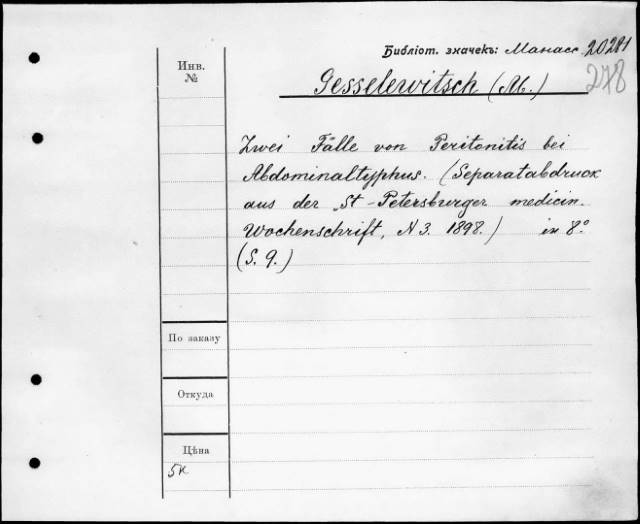 Библіот. значекъ: Манасс. 20281
278
Инв.
№
Gesselewitsch (M.)
Zwei Fälle von Peritonitis bei
Abdominaltyphus. (Separatabdruck
aus der „St-Petersburger medicin.
Wochenschrift, N 3. 1898.) in 8.º
(S. 9.)
По заказу
Откуда
Цѣна
5к